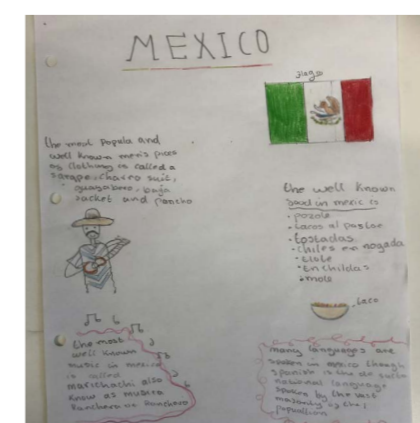 MEXICO
flag
the most Popula and,
well known men's pices
of clothing is called a
sarape, charro suit,
guayabera, baja
jacket and poncho
the well known
food in mexic is
• pozole
• tacos al pastor
• tostadas
• chiles en nogada
• elote
• Enchildas
• mole
taco
the most
well known
music in mexico
is called
marichachi also
know as musica
Ranchera or Ranchero
many languages are
spoken in mexico though
spanish is the de facto
national language
spoken by the vast
of the